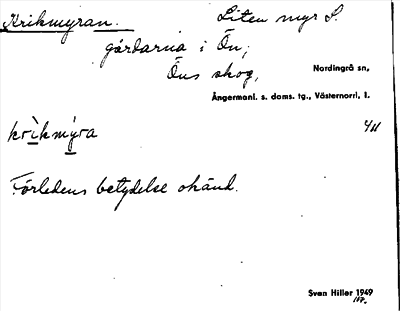 Krikmyran. Liten myr S.
gårdarna i Ön,
Öns skog,
Nordingrå sn,
Ångermanl. s. doms. tg., Västernorrl. l.
krikmyra 4/11
Förledens betydelse okänd.
Sven Hiller 1949